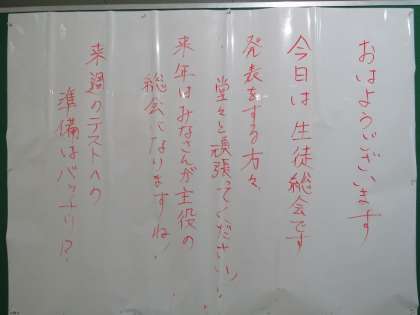 おはようございます
今日は生徒総会です
発表をする方々
堂々と頑張ってください!
来年はみなさんが主役の
総会になりますね!
来週のテストへの
準備はバッチリ!?